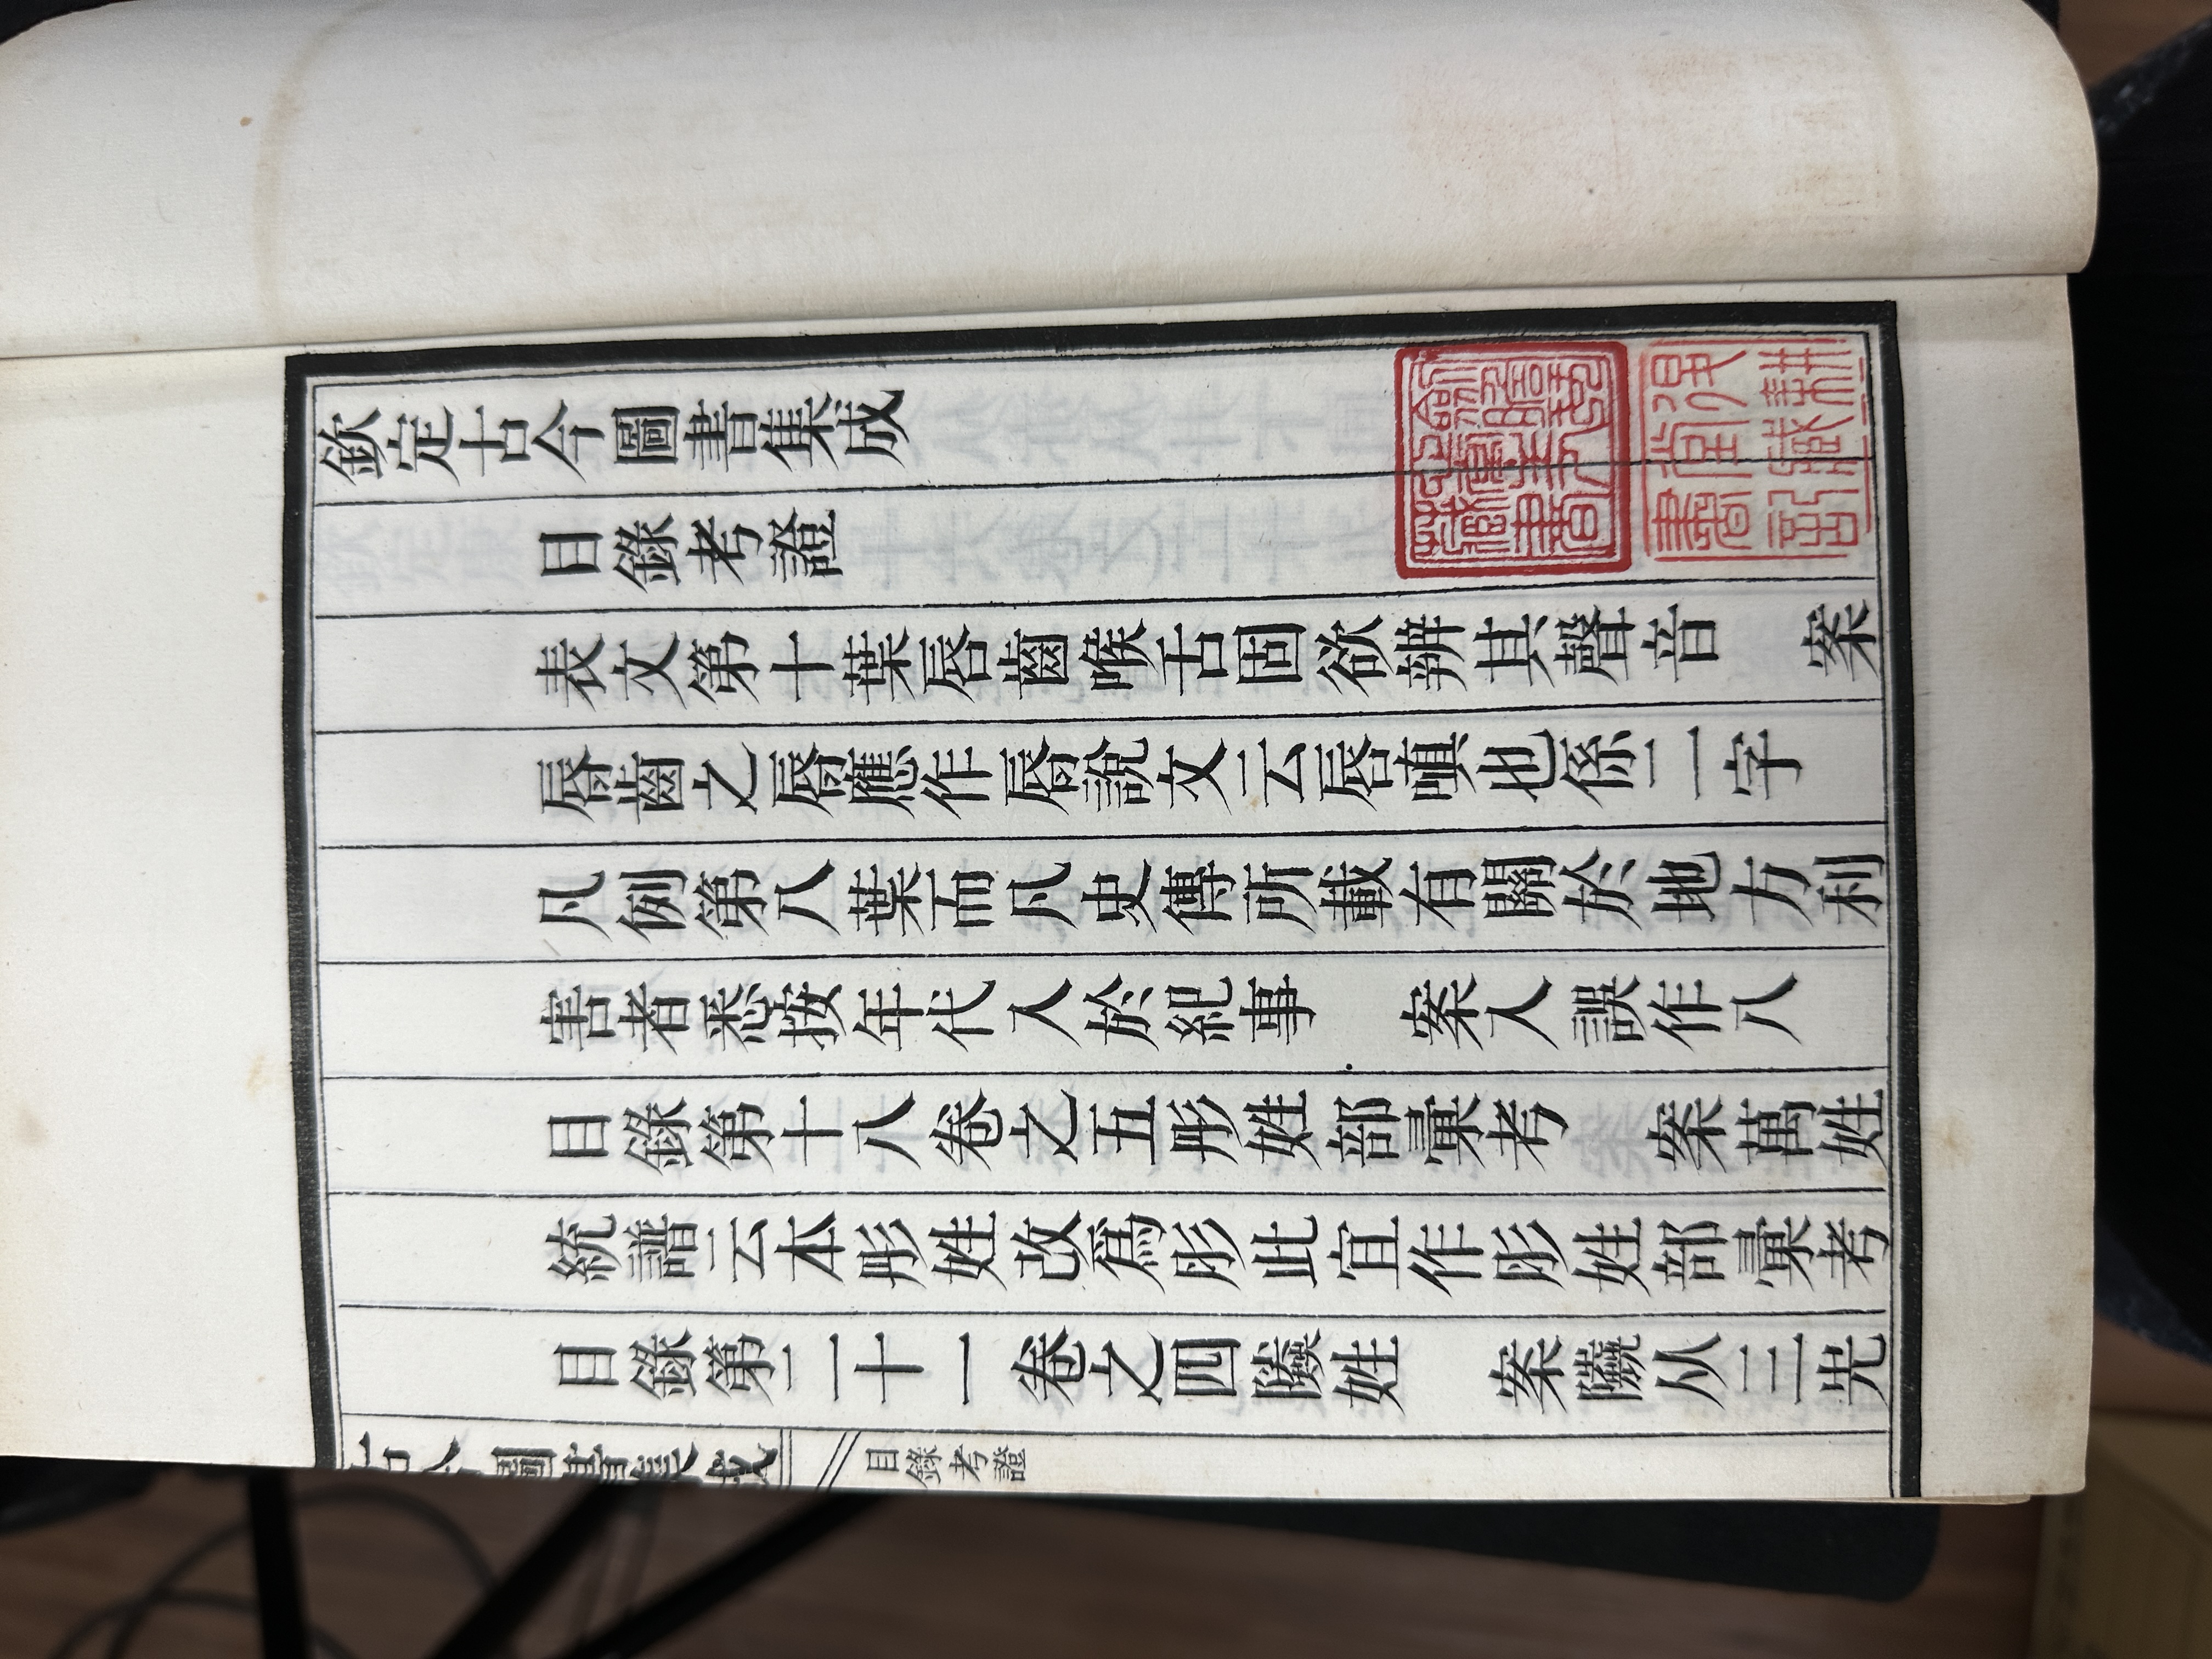 欽定古今圖書集成
目錄考證
表文第十葉唇齒喉舌固欲辨其聲音　案
脣齒之脣應作脣說文云唇嗔也係二字
凡例第八葉而凡史傳所載有關於地方利
害者悉按年代入於紀事　案入誤作八
目錄第十八卷之五彤姓部彙考　案萬姓
統譜云本彤姓改爲肜此宜作肜姓部彙考
目錄第二十一卷之四姓　案从三先
古今圖書集成
目錄考證